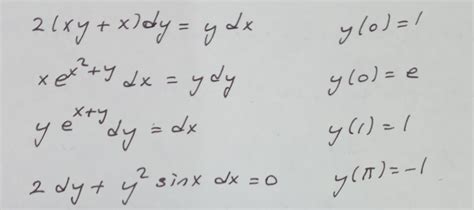 2(xy+x)dy = y dx    y(0)=1
xe^{x^2+y} dx = y dy    y(0)=e
y e^{x+y} dy = dx    y(1)=1
2 dy + y^2 sinx dx = 0    y(π)=-1